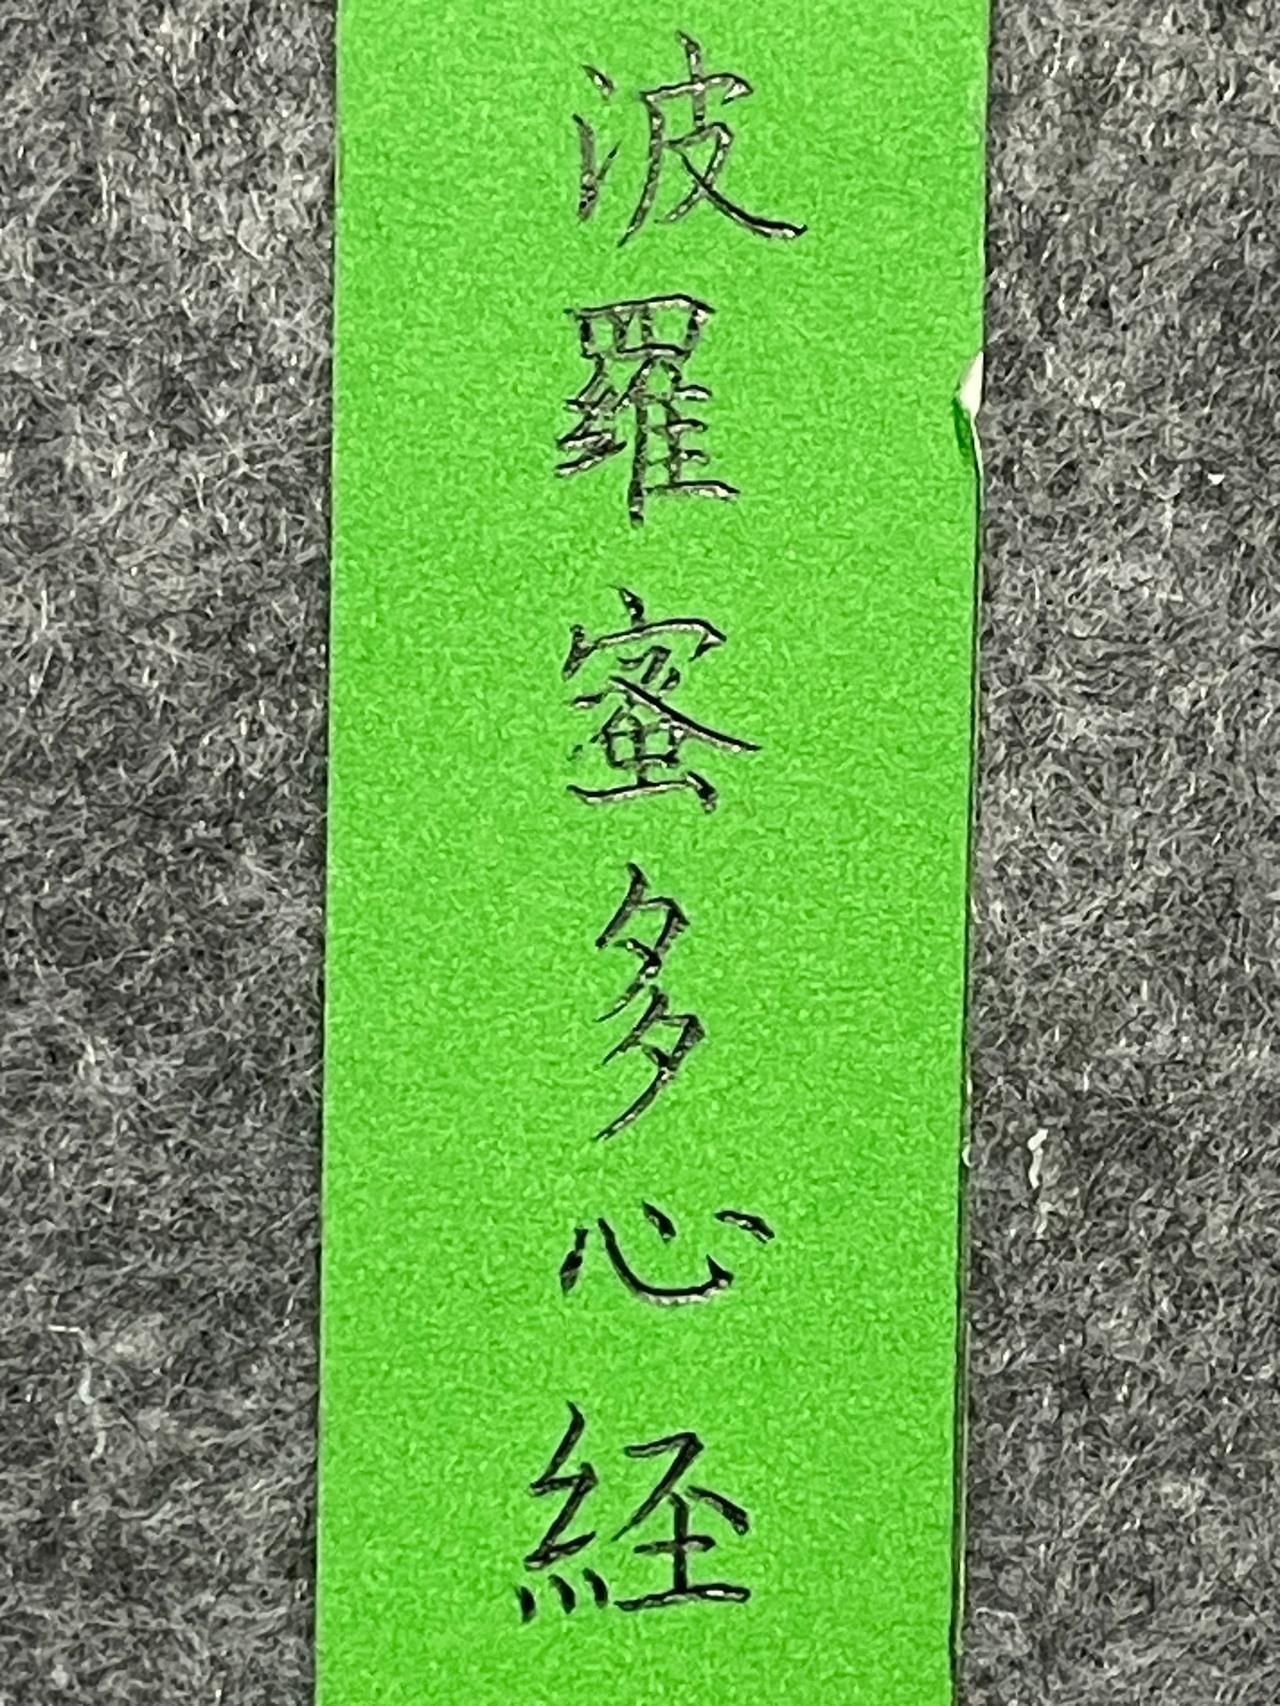 波羅蜜多心経